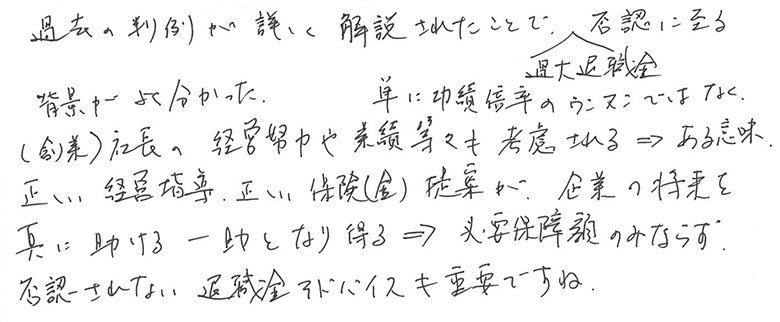 過去の判例が詳しく解説されたことで、否認に至る
過大退職金
背景がよく分かった。 単に功績倍率のウンヌンではなく、
(創業)社長の経営努力や業績等々も考慮される⇒ある意味、
正しい経営指導、正しい保険(金)提案が、企業の将来を
真に助ける一助となり得る⇒必要保障額のみならず、
否認されない退職金アドバイスも重要ですね。